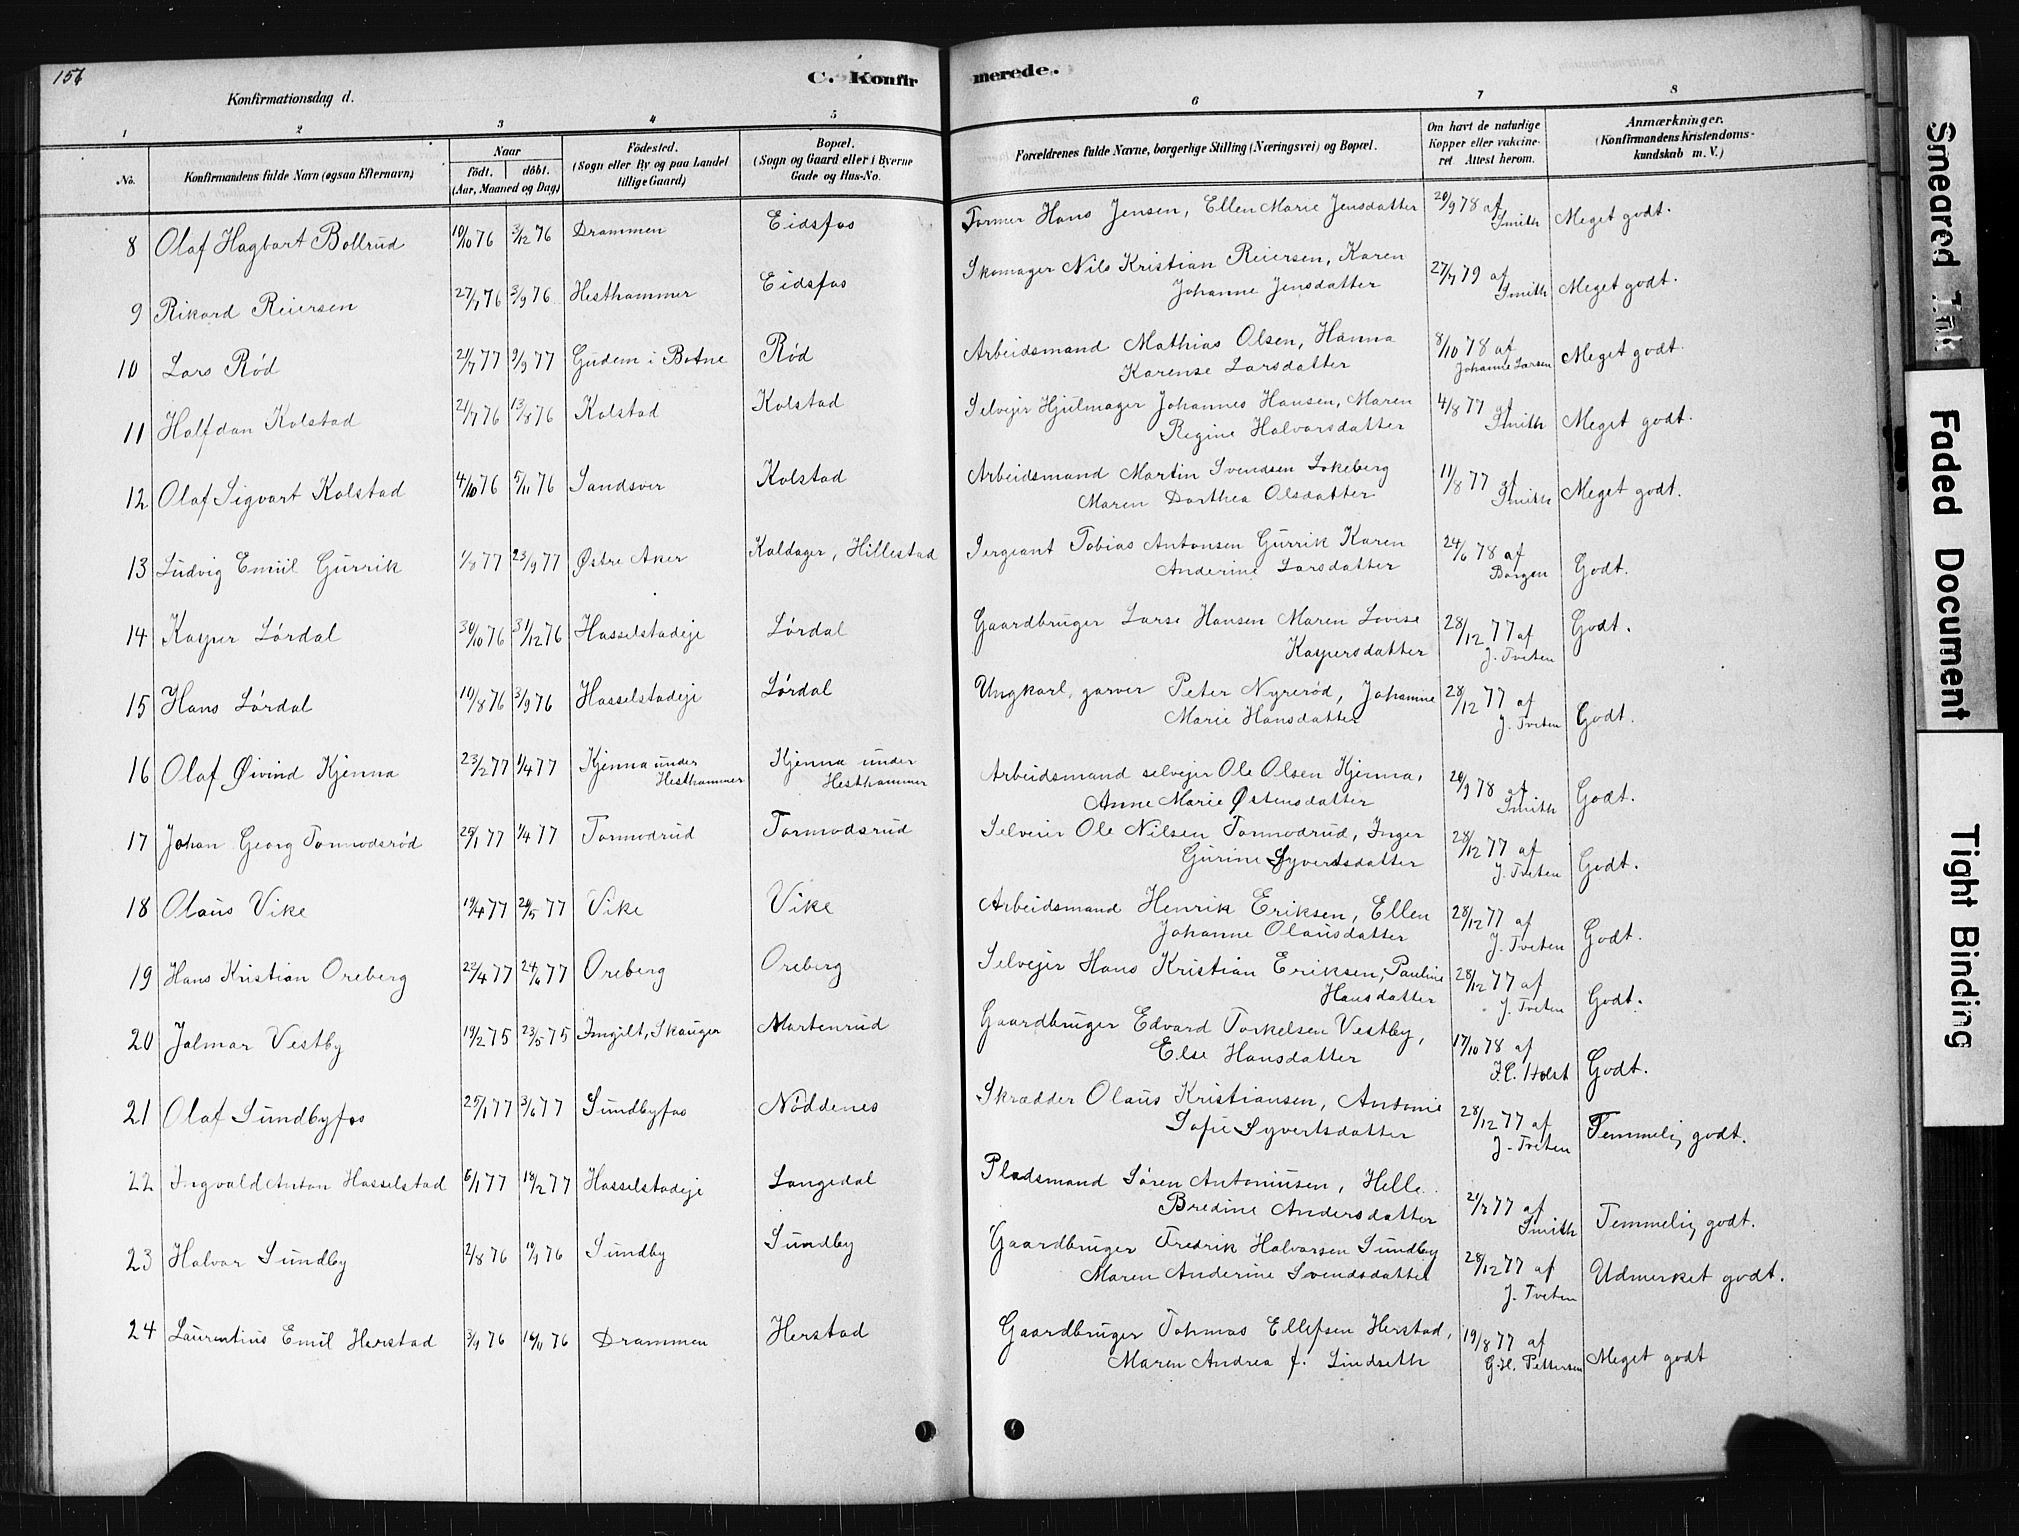 156
C. Konfirmerede.
Konfirmationsdag d.
1 2 3 4 5 6 7 8
No. Konfirmandens fulde Navn (ogsaa Efternavn) Naar født. døbt. (Aar, Maaned og Dag) Fødested. (Sogn eller By og paa Landet tillige Gaard) Bopæl. (Sogn og Gaard eller i Byerne Gade og Hus-No. Forældrenes fulde Navne, borgerlige Stilling (Næringsvei) og Bopæl. Om havt de naturlige Kopper eller vakcineret Attest herom. Anmærkninger. (Konfirmandens Kristendomskundskab m. V.)
8 Olaf Hagbart Bollrud 10/10 76 3/12 76 Drammen Eidsfos Former Hans Jensen, Ellen Marie Jensdatter 20/9 78 af Smith Meget godt.
9 Rikard Reiersen 27/7 76 3/9 76 Hesthammer Eidsfos Skomager Nils Kristian Reiersen, Karen
Johanne Jensdatter 27/7 79 af Smith Meget godt.
10 Lars Rød 21/7 77 9/9 77 Gudem i Botne Rød Arbeidsmand Mathias Olsen, Hanna
Karense Larsdatter 8/10 78 af Johanne Larsen Meget godt.
11 Halfdan Kolstad 21/7 76 13/8 76 Kolstad Kolstad Selvejer Hjulmager Johannes Hansen, Maren
Regine Halvorsdatter 4/8 77 af Smith Meget godt.
12 Olaf Sigvart Kolstad 4/10 76 5/11 76 Sandsver Kolstad Arbeidsmand Martin Svendsen Sokeberg
Maren Dorthea Olsdatter 11/8 77 af Smith Meget godt.
13 Ludvig Emiil Gurrik 1/8 77 23/9 77 Østre Aker Kaldager, Hillestad Sergeant Tobias Antonsen Gurrik Karen
Anderine Larsdatter 24/6 78 af Borgen Godt.
14 Kasper Lørdal 30/10 76 31/12 76 Hasselstadeje Lørdal Gaardbruger Larse Hansen Maren Lovise
Kaspersdatter 28/12 77 af J. Tveten Godt.
15 Hans Lørdal 10/8 76 3/9 76 Hasselstadeje Lørdal Ungkarl, garver Peter Nyrerød, Johanne
Marie Hansdatter 28/12 77 af J. Tveten Godt.
16 Olaf Øivind Kjenna 23/2 77 1/4 77 Kjenna under Hesthammer Kjenna under Hesthammer Arbeidsmand selvejer Ole Olsen Kjenna,
Anne Marie Østensdatter 20/9 78 af Smith Godt.
17 Johan Georg Tormodsrød 25/1 77 1/4 77 Tormodrud Tormodsrud Selveier Ole Nilsen Tormodrud, Inger
Gurine Syvertsdatter 28/12 77 af J. Tveten Godt.
18 Olaus Vike 19/4 77 20/5 77 Vike Vike Arbeidsmand Henrik Eriksen, Ellen
Johanne Olausdatter 28/12 77 af J. Tveten Godt.
19 Hans Kristian Oreberg 22/4 77 24/6 77 Oreberg Oreberg Selvejer Hans Kristian Eriksen, Pauline
Hansdatter 28/12 77 af J. Tveten Godt.
20 Jalmar Vestby 19/2 75 23/5 75 Imgilt, Skauger Martenrud Gaardbruger Edvard Torkelsen Vestby,
Else Hansdatter 17/10 78 af Holst Godt.
21 Olaf Sundbyfos 25/1 77 3/6 77 Sundbyfos Nøddenes Skrædder Olaus Kristiansen, Antonie
Sofie Syvertsdatter 28/12 77 af J. Tveten Temmelig godt.
22 Ingvald Anton Hasselstad 6/1 77 18/2 77 Hasselstadeje Langedal Pladsmand Søren Antoniusen, Helle
Bredine Andersdatter 21/7 77 af Smith Temmelig godt.
23 Halvor Sundby 2/8 76 Sundby Sundby Gaardbruger Fredrik Halvorsen Sundby
Maren Anderine Svendsdatter 28/12 77 af J. Tveten Udmerket godt.
24 Laurentius Emil Herstad 3/9 76 Drammen Herstad Gaardbruger Tohmas Ellefsen Herstad,
Maren Andrea f. Lindseth 19/8 77 af G.H. Pettersen Meget godt
Smeared Ink
Faded Document
Tight Binding